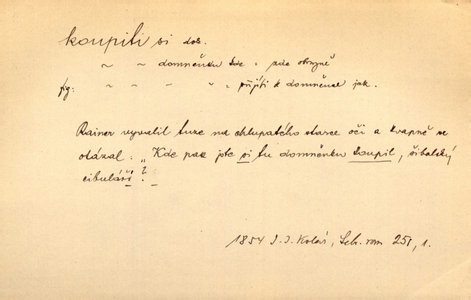 koupiti si dok.
~ ~ domněnku kde : zde obrazně
fig: ~ ~ ~ ~ „ přijíti k domněnce jak.
Rainer vyvalil tuze na chlupatého starce oči a kvapně se
otázal : „Kde pak jste si tu domněnku koupil, šibalský
cibuláři?"
1854 J. J. Kolár, Seb. rom 251, 1.